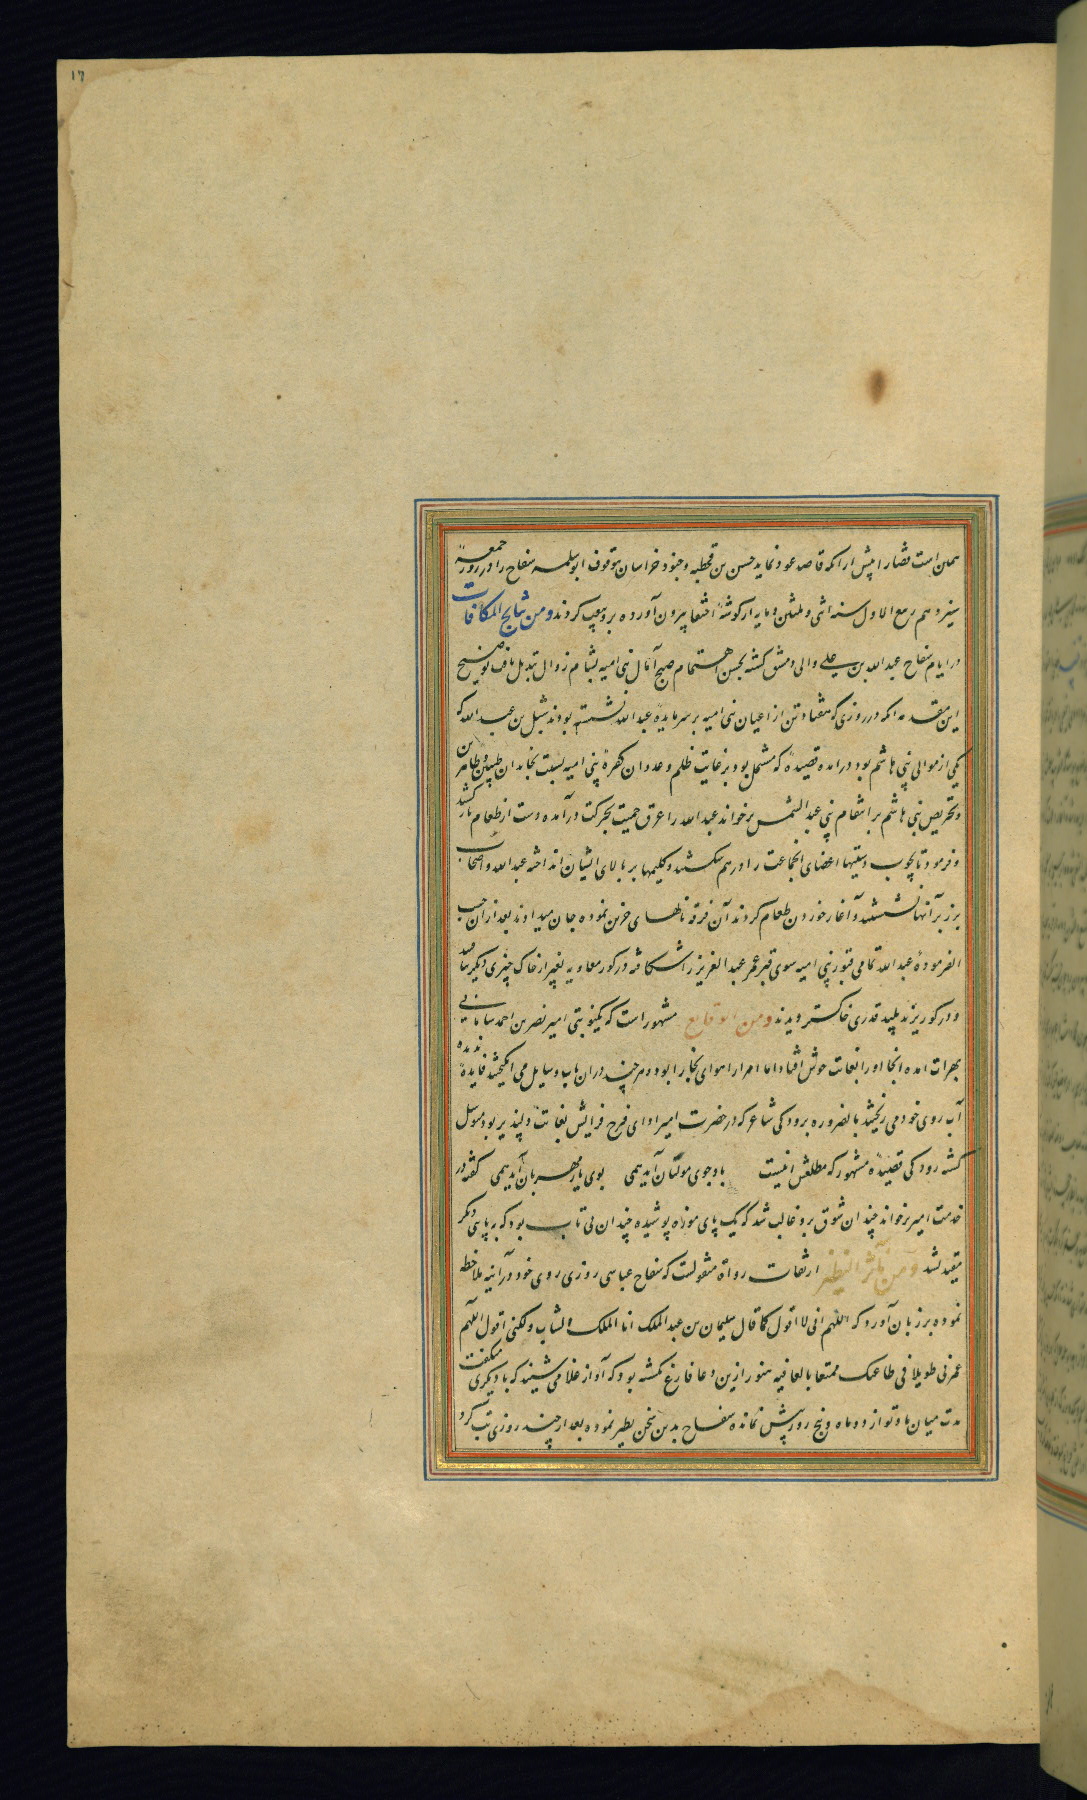 ۱۷
همان است قضا را پیش از آنکه قاصد عود نماید حسن بن قحطبه و جنود خراسان بتوقوف ابوسلمه سفاح را در روز جمعه
سیزدهم ربیع الاول سنه اثنی و ثلثین و مایه از گوشه اختفا بیرون آورده برو بیعت کردند ومن نتایج المکافات
در ایام سفاح عبدالله بن علی والی دمشق گشته بحسن اهتمام صبح آمال بنی امیه بشام زوال تبدل یافت توضیح
این مقدمه آنکه در روزی که هفتاد تن از اعیان بنی امیه بر سر مایدهٔ عبدالله نشسته بودند شبل بن عبدالله که
یکی از موالی بنی هاشم بود درآمده قصیدهٔ که مشتمل بود بر غایت ظلم و عدوان کفرهٔ بنی امیه نسبت بخاندان طیبین و طاهرین
و تحریص بنی هاشم بر انتقام بنی عبدالشمس برخواند عبدالله را عرق حمیت بحرکت درآمده دست از طعام بازکشید
و فرمود تا بچوب دستیها اعضای آنجماعت را درهم شکستند و گلیمها بر بالای ایشان انداخته عبدالله و اصحاب
بر زبر آنها نشستند و آغاز خوردن طعام کردند آن فرقه نالهای حزین نموده جان میدادند بعد از آن حسب
الفرمودهٔ عبدالله تمامی قبور بنی امیه سوی قبر عمر عبدالعزیز را شکافته در گور معاویه بغیر از خاک چیزی دیگر نیافتند
و در گور یزید پلید قدری خاکستر دیدند ومن الوقایع مشهور است که یک نوبتی امیر نصر بن احمد سامانی
بهرات آمده آنجا او را بغایت خوش افتاد اما امرا را هوای بخارا بود و هر چند در آن باب وسایل می انگیختند فایده نمیداد
آب روی خود می ریختند بالضروره برودکی شاعر که در حضرت امیر ادای فرح فزایش بغایت دلپذیر بود متوسل
گشته رودکی قصیدهٔ مشهور که مطلعش اینست باد جوی مولیان آید همی بوی یار مهربان آید همی گفته در
خدمت امیر برخواند چندان شوق برو غالب شد که یک پای موزه پوشیده چندان بی تاب بود که به پای دیگر
مقید نشد ومن مآثر النظیر از ثقات رواة منقولست که سفاح عباسی روزی روی خود در آینه ملاحظه
نموده بر زبان آورد که اللهم انی لا اقول کما قال سلیمان بن عبدالملک انا الملک الشاب ولکنی اقول اللهم
عمرنی طویلا فی طاعتک ممتعا بالعافیه هنوز ازین دعا فارغ نگشته بود که آواز غلامی شنید که با دیگری میگفت
مدت میان ما و تو از دو ماه و پنج روز بیش نمانده سفاح بدین سخن تطیر نموده بعد از چند روزی تب کرد